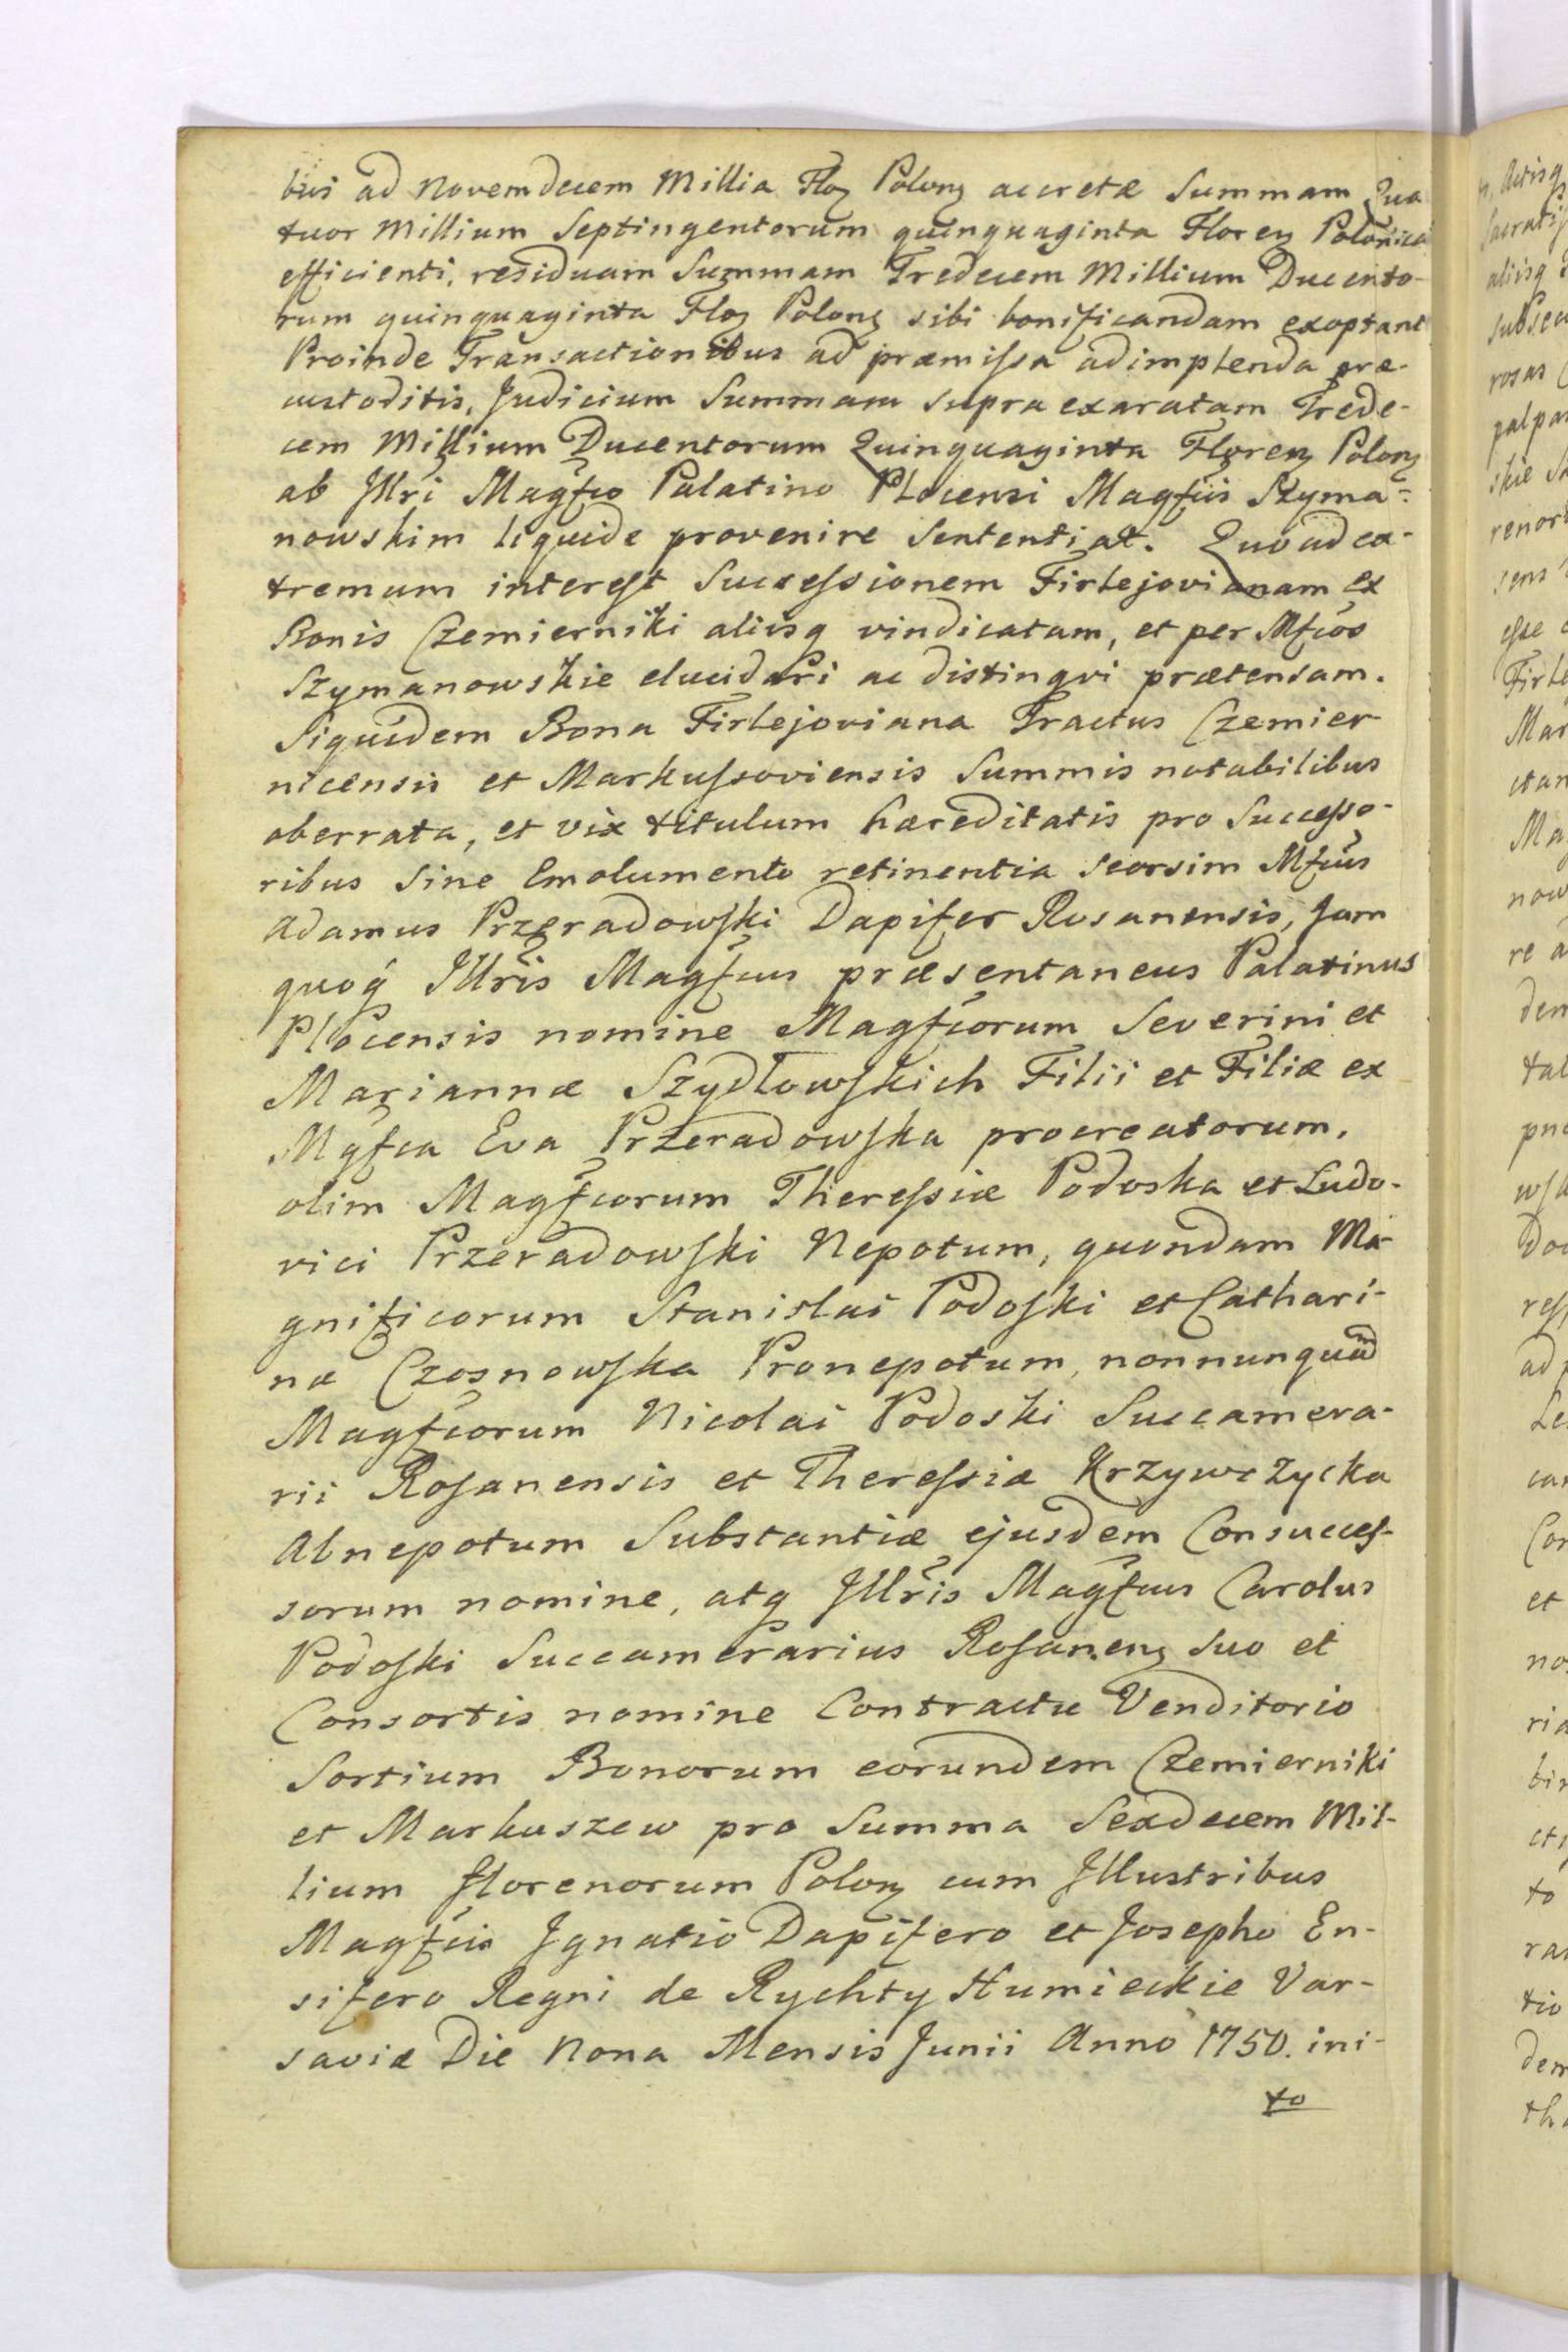 bus ad Novemdecem Millia Floz Polonz accretæ Summam Qua
tuor Millium Septingentorum quinquaginta Florenz Polonica
efficienti, residuam Summam Tredecem Millium Ducento-
rum quinquaginta Floz Polonz sibi bonificandam exoptant
Proinde Transactionibus ad præmiſsa adimplenda præ-
custoditis, Judicium Summam supra exaratam Trede-
cem Millium Ducentorum Quinquaginta Florenz Polonz
ab Jllri Magfco Palatino Plocensi Magfcis Szyma-
nowskim liquide provenire Sententiat. Quoad ex-
tremum intereſt Succeſsionem Firlejovianam ex
Bonis Czemierniki aliisq vindicatam, et per Mfcos
Szymanowskie elucidari ac distingvi prætensam.
Siquidem Bona Firlejoviana Tractus Czemier
nicensis et Markuſsoviensis Summis notabilibus
oberrata, et vix titulum hæreditatis pro Succeſso-
ribus Sine Emolumento retinentia seorsim Mfcus
Adamus Przeradowſki Dapifer Rosanensis, Jam
quoq Jllris Magfcus præsentaneus Palatinus
Plocensis nomine Magfcorum Severini et
Mariannæ Szydłowſkich Filii et Filiæ ex
Mgfca Eva Przeradowſka procreatorum,
olim Magfcorum Thereſsiæ Podoska et Ludo-
vici Przeradowſki Nepotum, quondam Ma-
gnificorum Stanislai Podoſki et Cathari-
næ Czosnowſka Pronepotum, nonnunquam
Magfcorum Nicolai Podoski Succamera-
rii Roſanensis et Thereſsiæ Krzywczycka
Abnepotum Substantiæ ejusdem Consucceſ-
sorum nomine, atq Jllris Magfcus Carolus
Podoſki Succamerarius Roſanenz suo et
Consortis nomine Contractu Venditorio
Sortium Bonorum eorundem Czemierniki
et Markuszew pro Summa Sexdecem Mil-
lium florenorum Polonz cum Jllustribus
Magfcis Jgnatio Dapifero et Josepho En-
sifero Regni de Rychty Humieckie Var-
saviæ Die Nona Mensis Junii Anno 1750. ini-
to